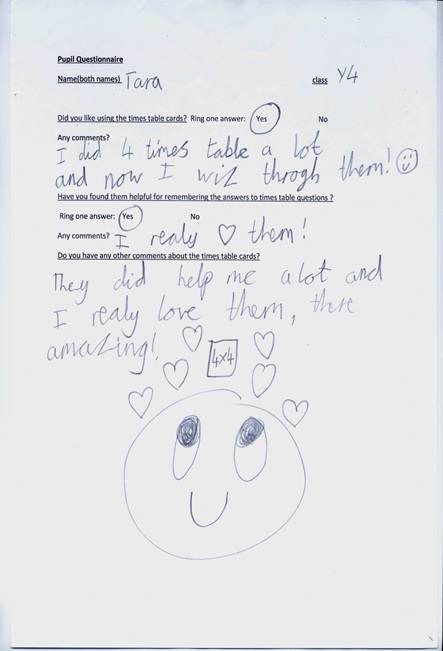 Pupil Questionnaire
Name(both names) Tara class Y4
Did you like using the times table cards? Ring one answer: Yes No
Any comments?
I did 4 times table a lot
and now I wiz throgh them!
Have you found them helpful for remembering the answers to times table questions ?
Ring one answer: Yes No
Any comments? I realy ♡ them!
Do you have any other comments about the times table cards?
They did help me alot and
I realy love them, there
amazing!
4x4